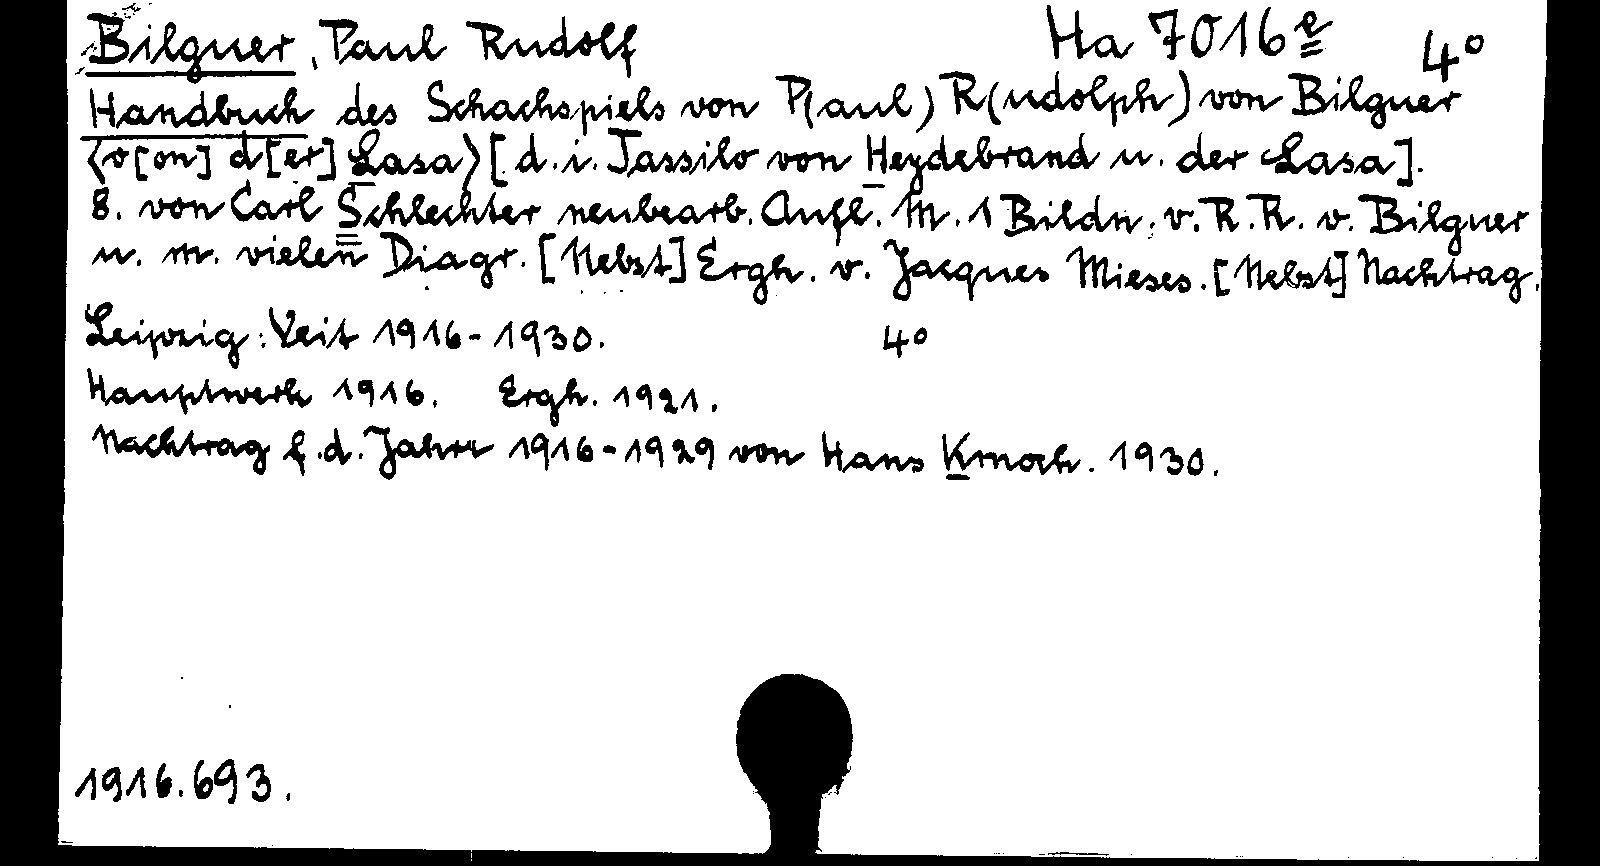 Bilguer, Paul Rudolf Ha 7016e 4°
Handbuch des Schachspiels von P(aul) R(udolph) von Bilguer
⟨v[on] d[er] Lasa⟩ [d. i. Tassilo von Heydebrand u. der Lasa].
8. von Carl Schlechter neubearb. Aufl. M. 1 Bildn. v. P. R. v. Bilguer
u. m. vielen Diagr. [Nebst] Ergh. v. Jacques Mieses. [Nebst] Nachtrag.
Leipzig: Veit 1916-1930. 4°
Hauptwerk 1916. Ergh. 1921.
Nachtrag f. d. Jahre 1916-1929 von Hans Kmoch. 1930.
1916.693.